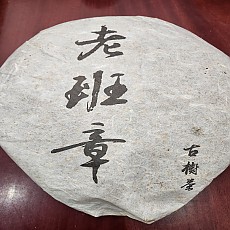 老班章
古樹茶